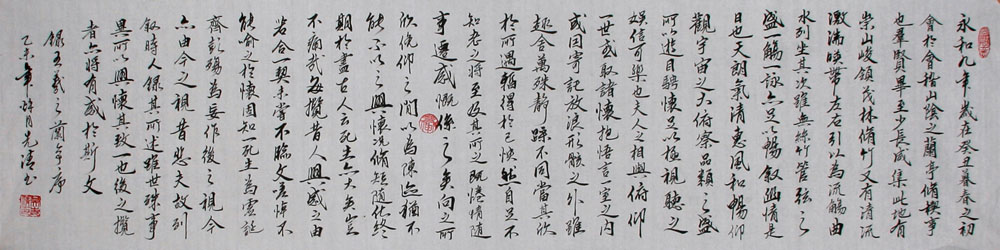 永和九年歲在癸丑暮春之初
會於會稽山陰之蘭亭脩禊事
也群賢畢至少長咸集此地有
崇山峻領茂林脩竹又有清流
激湍暎帶左右引以為流觴曲
水列坐其次雖無絲竹管弦之
盛一觴一詠亦足以暢敘幽情是
日也天朗氣清惠風和暢仰
觀宇宙之大俯察品類之盛
所以遊目騁懷足以極視聽之
娛信可樂也夫人之相與俯仰
一世或取諸懷抱悟言一室之內
或因寄託放浪形骸之外雖
趣舍萬殊靜躁不同當其欣
於所遇暫得於己快然自足不
知老之將至及其所之既惓情隨
事遷感慨係之矣向之所
欣俛仰之間以為陳迹猶不
能不以之興懷況脩短隨化終
期於盡古人云死生亦大矣豈
不痛哉每攬昔人興感之由
若合一契未嘗不臨文嗟悼不
能喻之於懷固知死生為虛誕
齊彭殤為妄作後之視今
亦由今之視昔悲夫故列
敘時人錄其所述雖世殊事
異所以興懷其致一也後之攬
者亦將有感於斯文
錄王羲之蘭亭序
乙未年月光書